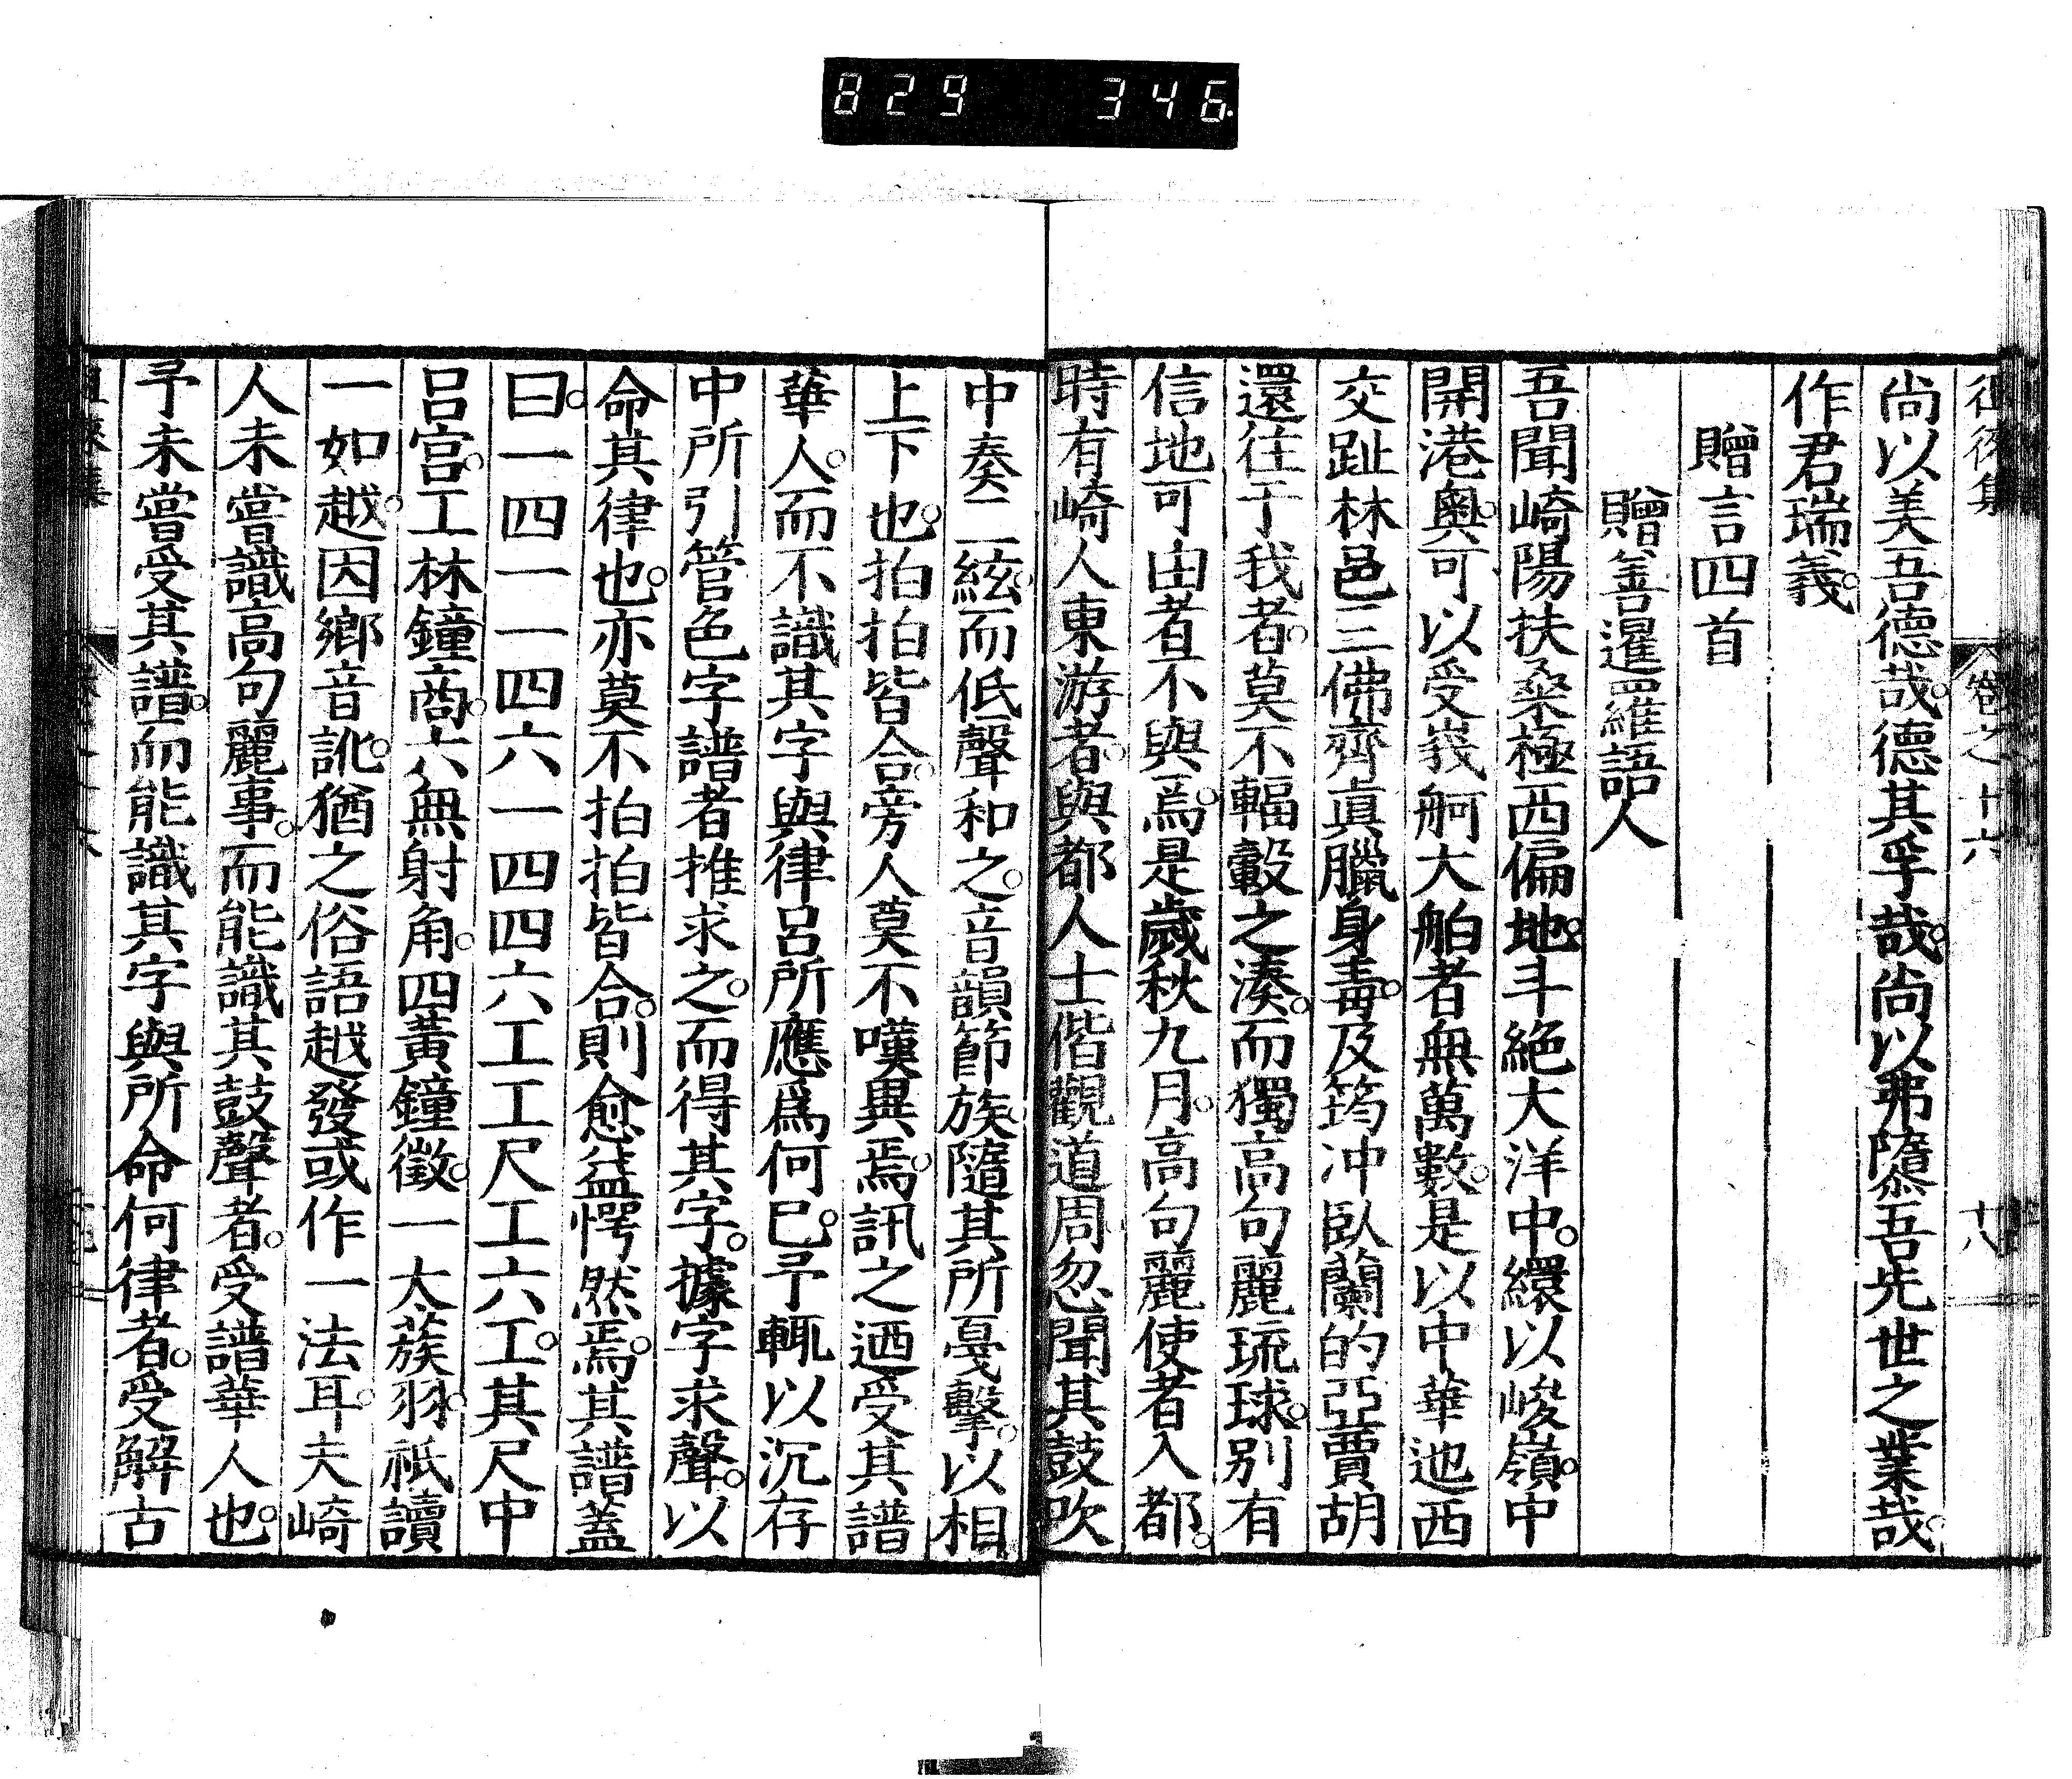 829 346
徂徠集 卷之十六 十八
尚以美吾德哉。德其孚哉。尚以弗隳吾先世之業哉。
作君瑞義。
贈言四首
贈善暹羅語人
吾聞崎陽扶桑極西偏地。斗絕大洋中。繯以峻嶺。中
開港奧。可以受峩舸大舶者無萬數。是以中華迆西
交趾林邑三佛齊眞臘身毒。及筠冲臥蘭的亞賈胡
還往于我者。莫不輻轂之湊。而獨高句麗琉球。別有
信地可由者不與焉。是歲秋九月。高句麗使者入都。
時有崎人東游者。與都人士偕觀道周忽聞其鼓吹
中奏二絃。而低聲和之。音韻節族。隨其所戞擊。以相
上下也。拍拍皆合。旁人莫不嘆異焉。訊之迺受其譜
華人。而不識其字與律呂所應爲何已。予輒以沉存
中所引管色字譜者推求之。而得其字。據字求聲。以
命其律也。亦莫不拍拍皆合。則愈益愕然焉。其譜蓋
曰。一四一一四六一四四六工工尺工六工。其尺中
呂宮。工林鐘商。六無射角。四黃鐘徵。一大蔟羽。祇讀
一如越。因鄉音訛。猶之俗語越發或作一法耳。夫崎
人未嘗識高句麗事。而能識其鼓聲者。受譜華人也。
予未嘗受其譜。而能識其字與所命何律者。受解古